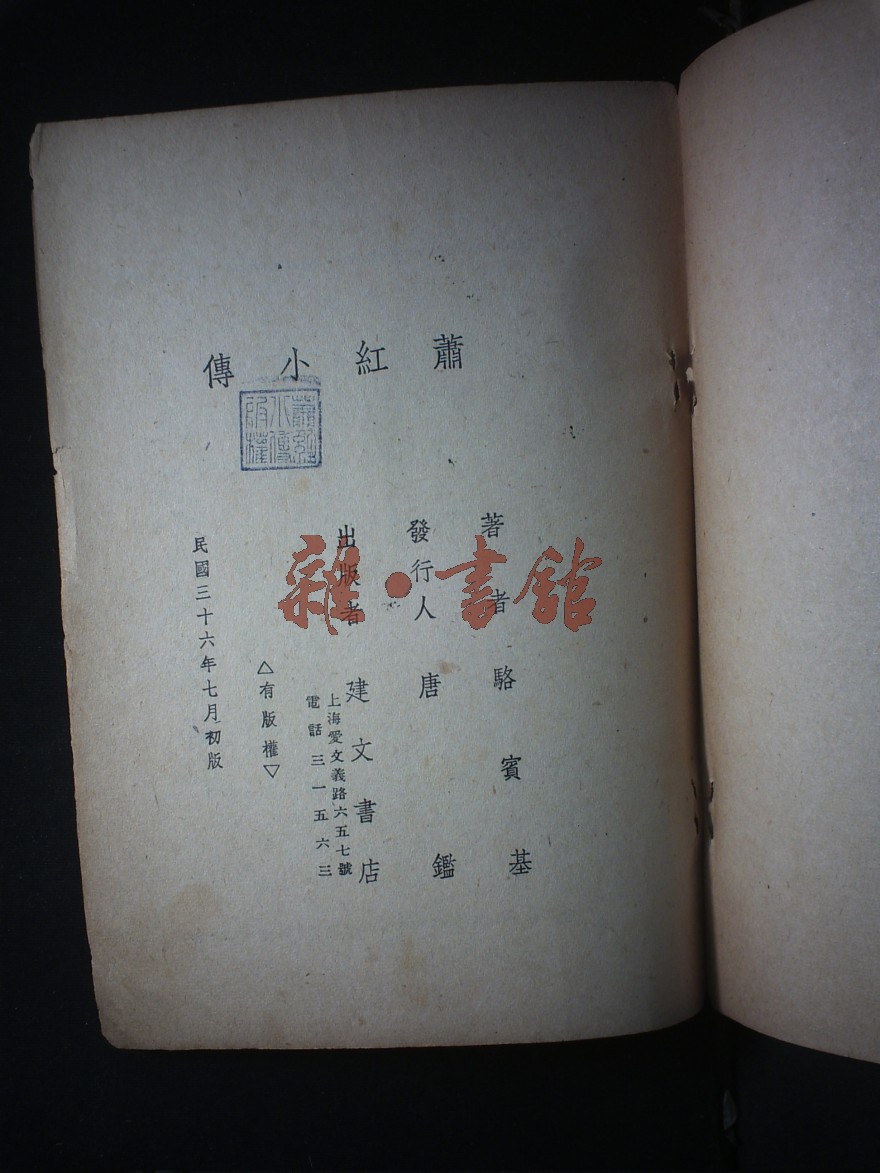 蕭紅小傳
蕭紅
小傳
版權
著者 駱賓基
發行人 唐鑑
出版者 建文書店
上海愛文義路六五七號
電話三一五六三
△有版權▽
民國三十六年七月初版
雜·書館